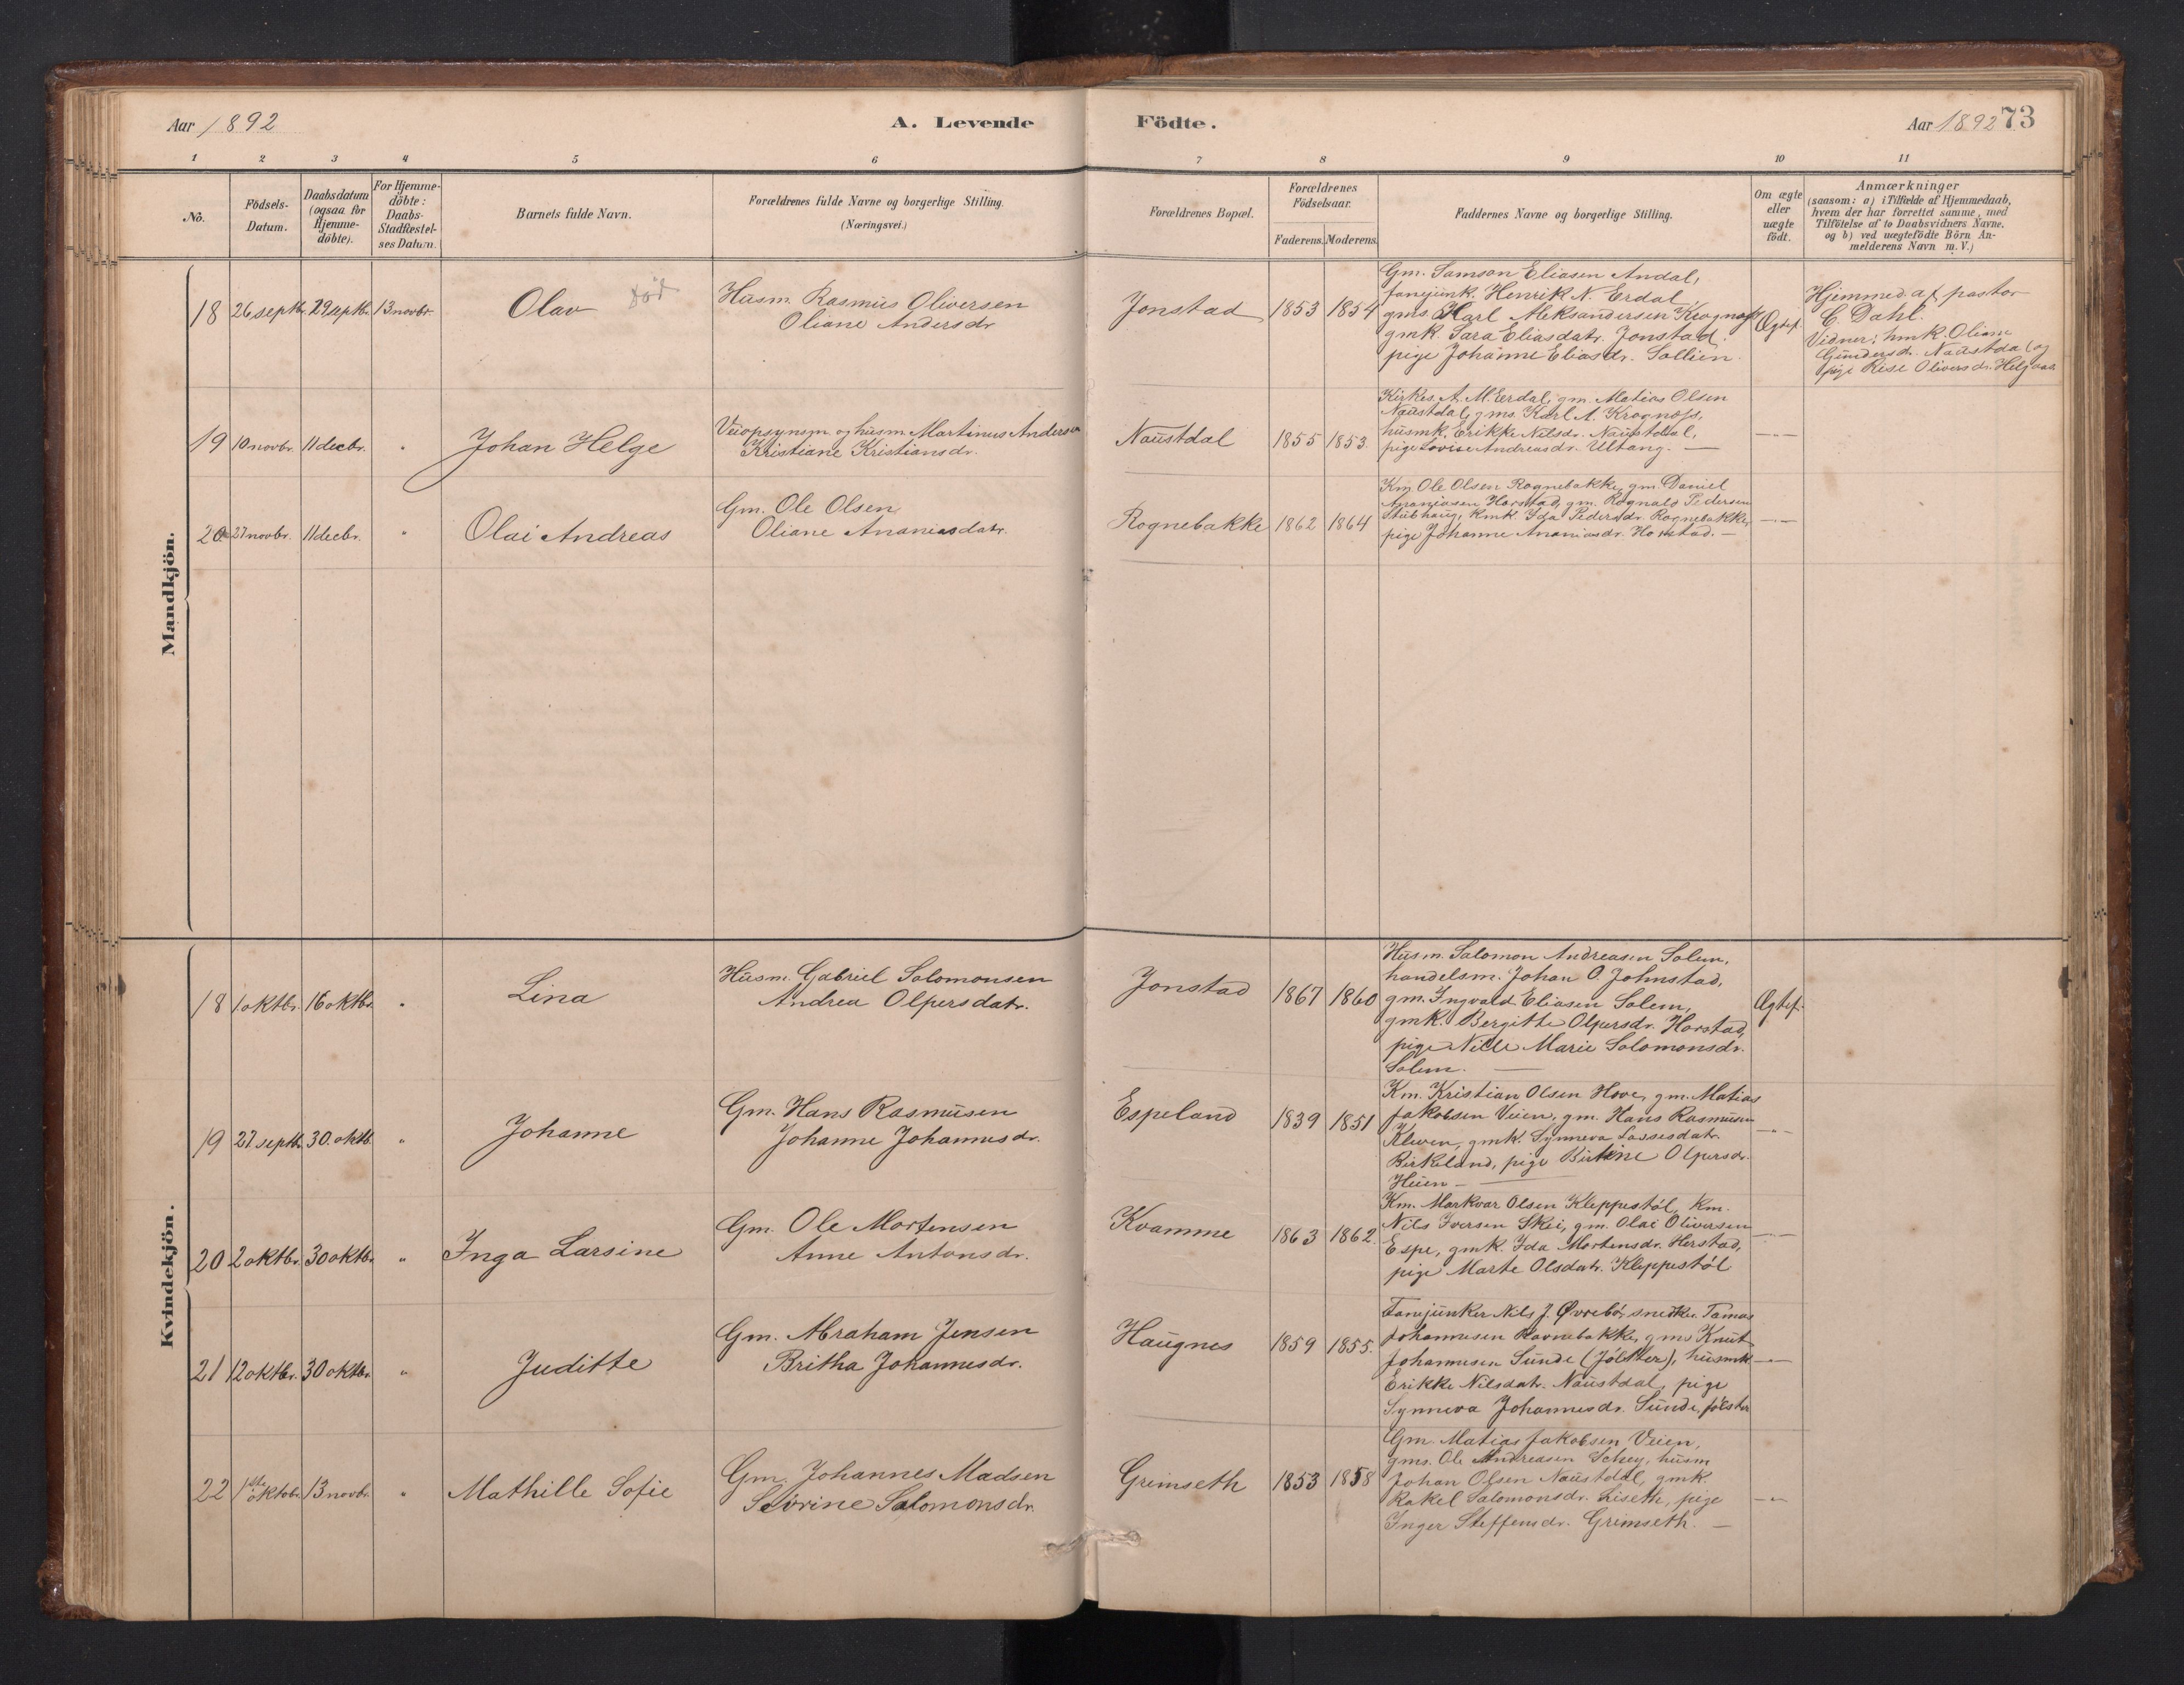 Aar 1892
A. Levende
Födte.
Aar 1892 73
1 2 3 4 5 6 7 8 9 10 11
No.
Födsels-
Datum.
Daabsdatum
(ogsaa for
Hjemme-
döbte).
For Hjemme-
döbte:
Daabs-
Stadfæstel-
ses Datum.
Barnets fulde Navn.
Forældrenes fulde Navne og borgerlige Stilling.
(Næringsvei.)
Forældrenes Bopæl.
Forældrenes
Födselsaar.
Faderens. Moderens.
Faddernes Navne og borgerlige Stilling.
Om ægte
eller
uægte
födt.
Anmærkninger
(saasom: a) i Tilfælde af Hjemmedaab,
hvem der har forrettet samme, med
Tilföielse af to Daabsvidners Navne.
og b) ved uægtefödte Börn An-
melderens Navn m. V.)
Mandkjön.
18 26 septbr. 29 septbr. 13 novbr.
Olav død
Husm. Rasmus Oliversen
Oliane Andersdr.
Jonstad 1853 1854
Gm. Samson Eliasen Andal,
fanejunk. Henrik N. Erdal,
gms Karl Aleksandersen Krognæss
gmk. Sara Eliasdatr. Jonstad.
pige Johanne Eliasdr. Sollien.
Ægtef.
Hjemmed. af pastor
C. Dahl.
Vidner: hmk. Oliane
Gundersdr. Naustdal og
pige Lise Oliversdr. Helgaas
19 10 novbr. 11 decbr. "
Johan Helge
Veiopsynsm. og husm. Martinus Andersen
Kristiane Kristiansdr.
Naustdal 1855 1853.
Kirkes. A. M. Erdal, gm. Matias Olsen
Naustdal, gms. Karl A. Krognæss,
husmk. Erikke Nilsdr. Naustdal,
pige Lovise Andreasdr. Ultang. —
— " —
20 27 novbr. 11 decbr. "
Olai Andreas
Gm. Ole Olsen
Oliane Ananiasdatr.
Rognebakke 1862 1864
Km. Ole Olsen Rognebakke, gm. Daniel
Ananiasen Horstad, gm. Rognald Pedersen
Stubhaug, kmk. Ida Pedersdr. Rognebakke,
pige Johanne Ananiasdr. Horstad. —
— " —
Kvindekjön.
18 1 oktbr. 16 oktbr. "
Lina
Husm. Gabriel Salomonsen
Andrea Olpersdatr.
Jonstad 1867 1860
Husm. Salomon Andreasen Solem,
handelsm. Johan O. Johnstad,
gm. Ingvald Eliasen Solem,
gmk. Bergitte Olpersdr. Horstad,
pige Nille Marie Solomonsdr.
Solem. —
Ægtef.
19 27 septbr. 30. oktb. "
Johanne
Gm. Hans Rasmusen
Johanne Johannesdr.
Espeland 1839 1851
Km. Kristian Olsen Hove, gm. Matias
Jakobsen Veien, gm. Hans Rasmusen
Kleven, gmk. Synneva Lassesdatr.
Birkeland, pige Birthine Olpersdr.
Heien —
— " —
20 2 oktbr. 30 oktbr. "
Inga Larsine
Gm. Ole Mortensen
Anne Antonsdr.
Kvamme 1863 1862.
Km. Markvar Olsen Kleppestöl, km.
Nils Iversen Skei, gm. Olai Oliversen
Espe, gmk. Ida Mortensdr. Herstad,
pige Marte Olsdatr. Kleppestöl
— " —
21 12 oktbr. 30 oktbr. "
Juditte
Gm. Abraham Jensen
Britha Johannesdr.
Haugnes 1859 1855.
Fanejunker Nils J. Øvrebö, snedker Tomas
Johannesen Ravnebakke, gms Knut
Johannesen Sunde (Jölster), husmk
Erikke Nilsdatr. Naustdal, pige
Synneva Johannesdr. Sunde, Jölster
— " —
22 1ste oktobr. 13 novbr. "
Mathille Sofie
Gm. Johannes Madsen
Severine Salomonsdr.
Grimseth 1853 1858
Gm. Matias Jakobsen Veien,
gms. Ole Andreasen Schey, husm
Johan Olsen Naustdal, gmk.
Rakel Salomonsdr. Liseth, pige
Inger Steffensdr. Grimseth. —
— " —